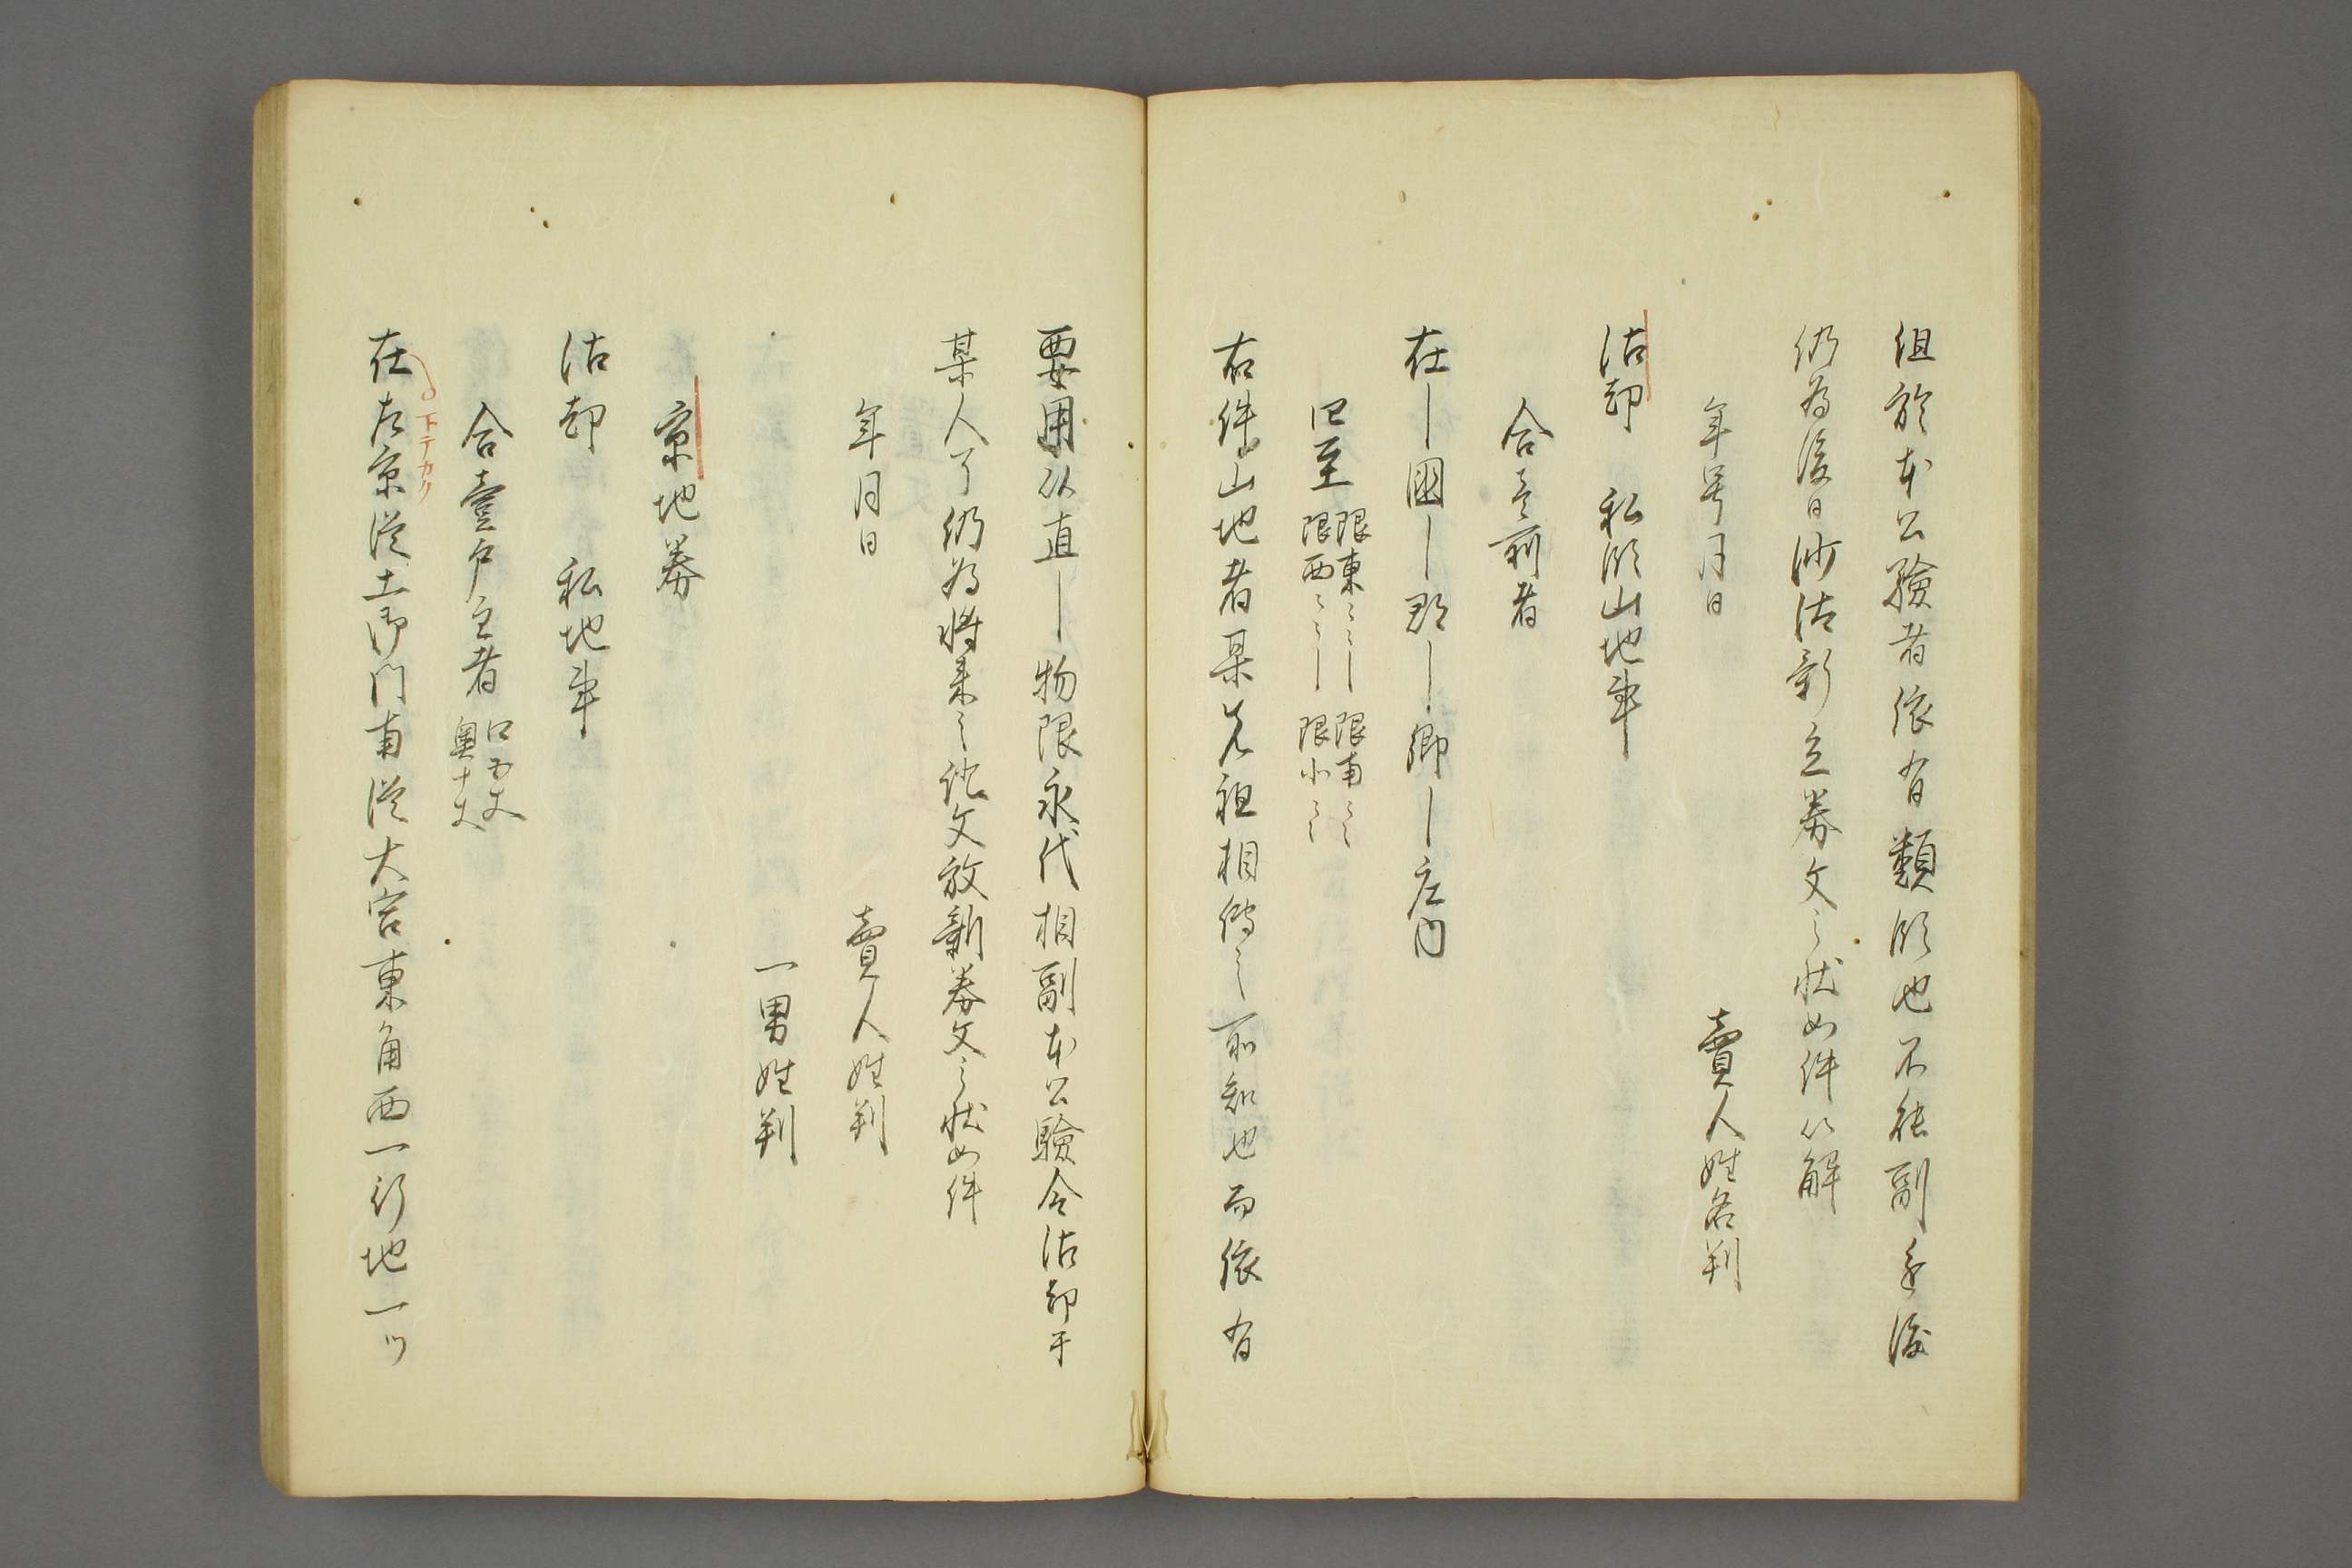 但於本公験者依有類領地不能副進後
仍為後日沙汰新立券文之状如件以解
年号月日
賣人姓名判
沽却 私領山地事
合壱所者
在ー國ー郡ー郷ー庄内
四至 限東〻〻ー 限南〻〻
限西〻〻ー 限北〻〻
右件山地者某先祖相傳之所知也而依有
要用以直ー物限永代相副本公験令沽却于
某人了仍為将来之証文放新券文之状如件
年月日
賣人姓判
一男姓判
京地券
沽却 私地事
合壹戸主者 口五丈
奥十丈
下テカク
在左京従土御門南従大宮東角西一行地一ツ